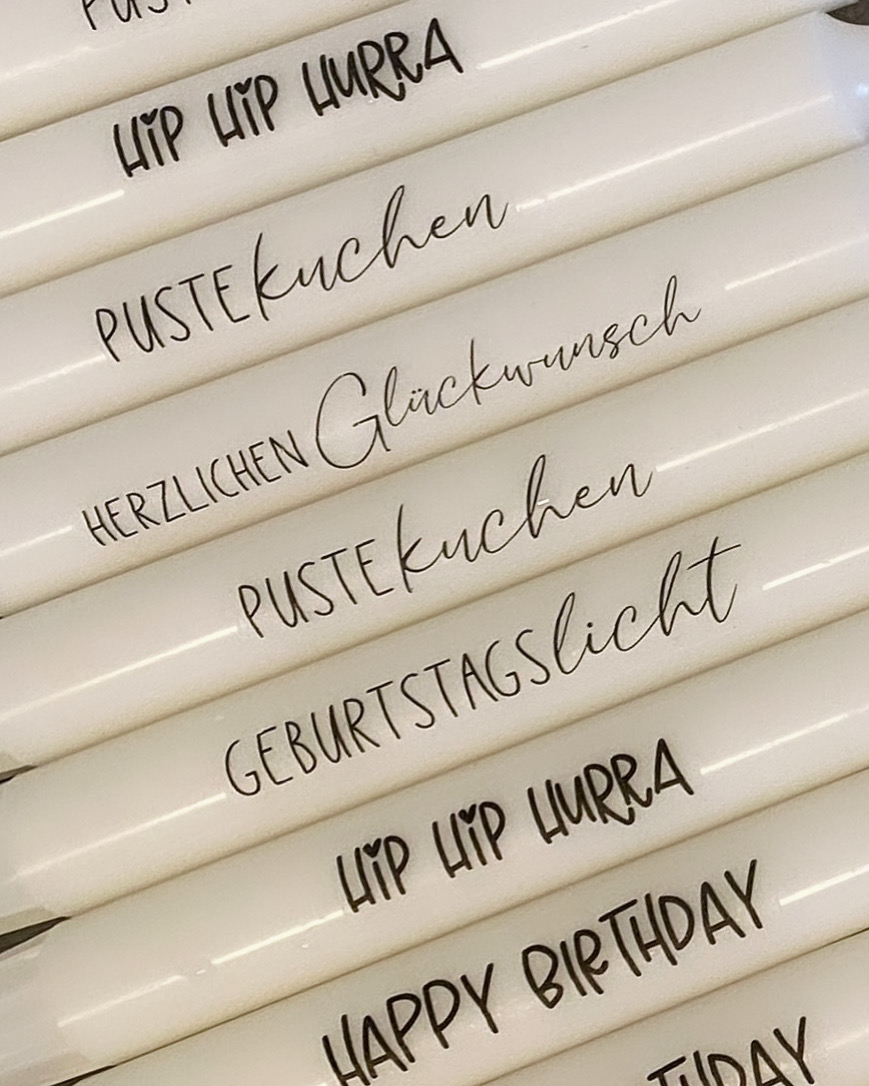 PUST
HIP HIP HURRA
PUSTEkuchen
HERZLICHEN Glückwunsch
PUSTEkuchen
GEBURTSTAGSlicht
HIP HIP HURRA
HAPPY BIRTHDAY
THDAY